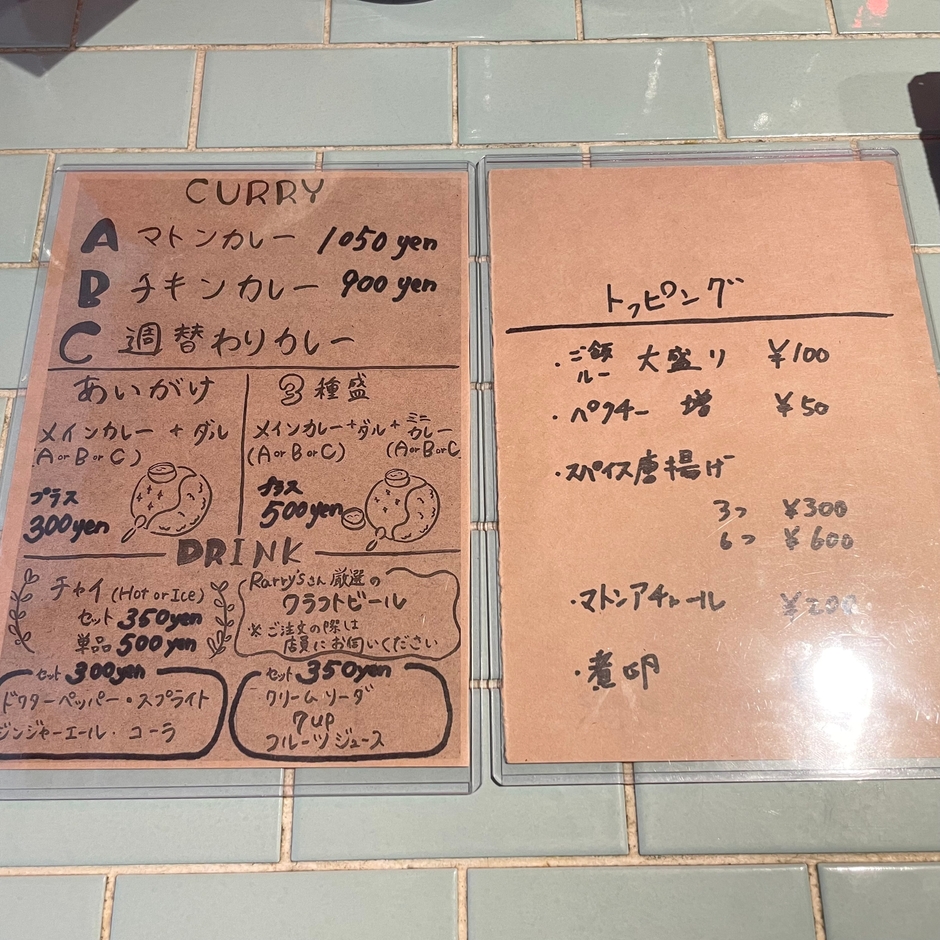 CURRY
A マトンカレー 1050 yen
B チキンカレー 900 yen
C 週替わりカレー
あいがけ
メインカレー + ダル
(A or B or C)
プラス
300yen
3種盛
メインカレー+ダル+ミニカレー
(A or B or C) (A or B or C)
プラス
500yen
DRINK
チャイ (Hot or Ice)
セット 350yen
単品 500yen
Rarry'sさん 厳選の
クラフトビール
※ ご注文の際は
店員にお伺いください
セット 300yen
ドクターペッパー・スプライト
ジンジャーエール・コーラ
セット 350yen
クリームソーダ
7up
フルーツジュース
トッピング
・ご飯 ルー 大盛り ¥100
・パクチー 増 ¥50
・スパイス唐揚げ
3つ ¥300
6つ ¥600
・マトンアチャール ¥200
・煮卵